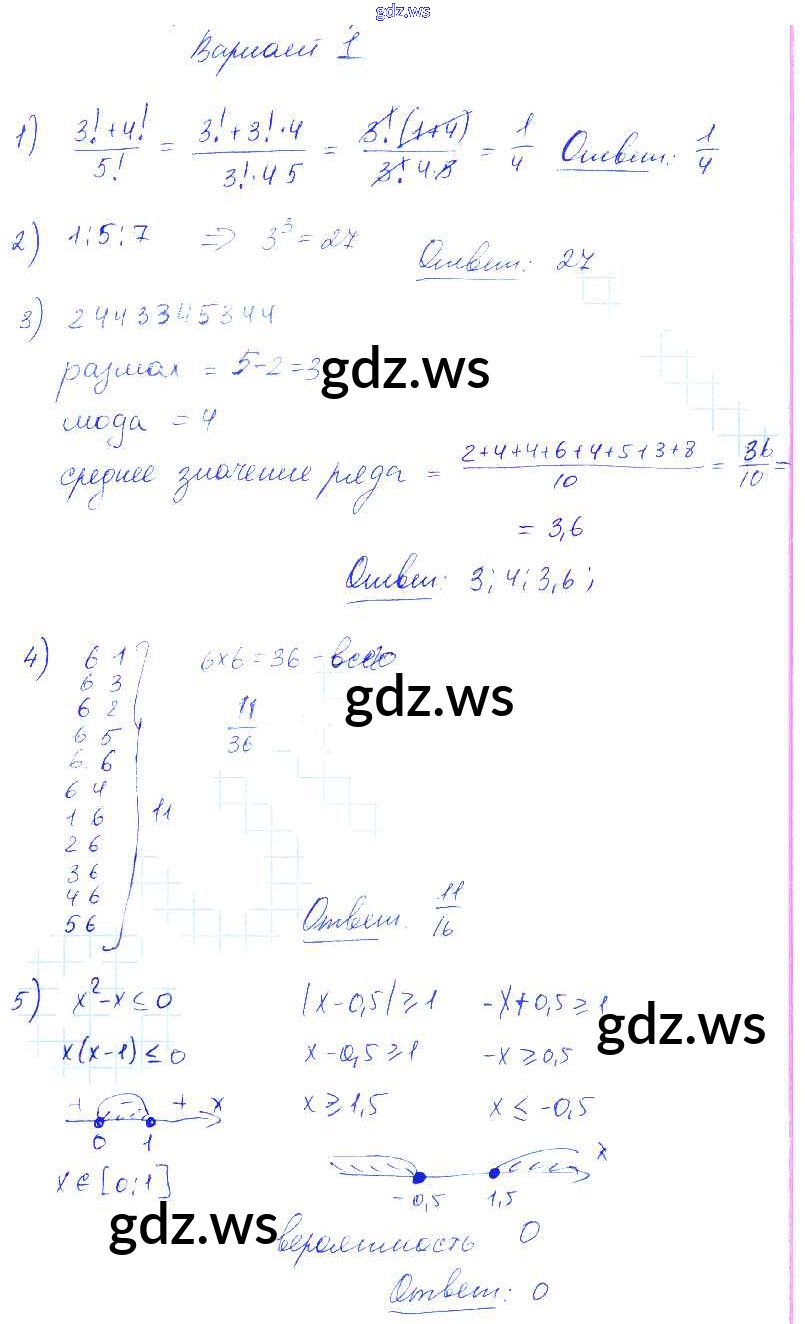 gdz.ws
Вариант 1
1) (3!+4!)/5! = (3!+3!·4)/(3!·4 5) = (3!(1+4))/(3!·4·5) = 1/4 Ответ: 1/4
2) 1;5;7 => 3³=27 Ответ: 27
3) 2 4 4 3 3 3 4 5 3 4 4
размах = 5-2=3
gdz.ws
мода = 4
среднее значение ряда = (2+4+4+6+4+5+3+8)/10 = 36/10 =
= 3,6
Ответ: 3; 4; 3,6;
4) 6 1 6×6=36 - всего
6 3
gdz.ws
6 2 11/36
6 5
6 6
6 4
1 6 11
2 6
3 6
4 6
5 6
Ответ. 11/16
5) x²-x≤0 |x-0,5|≥1 -x+0,5≥1
gdz.ws
x(x-1)≤0 x-0,5≥1 -x≥0,5
+ - + x x≥1,5 x≤-0,5
0 1
x
x∈[0;1] -0,5 1,5
gdz.ws
вероятность 0
Ответ: 0